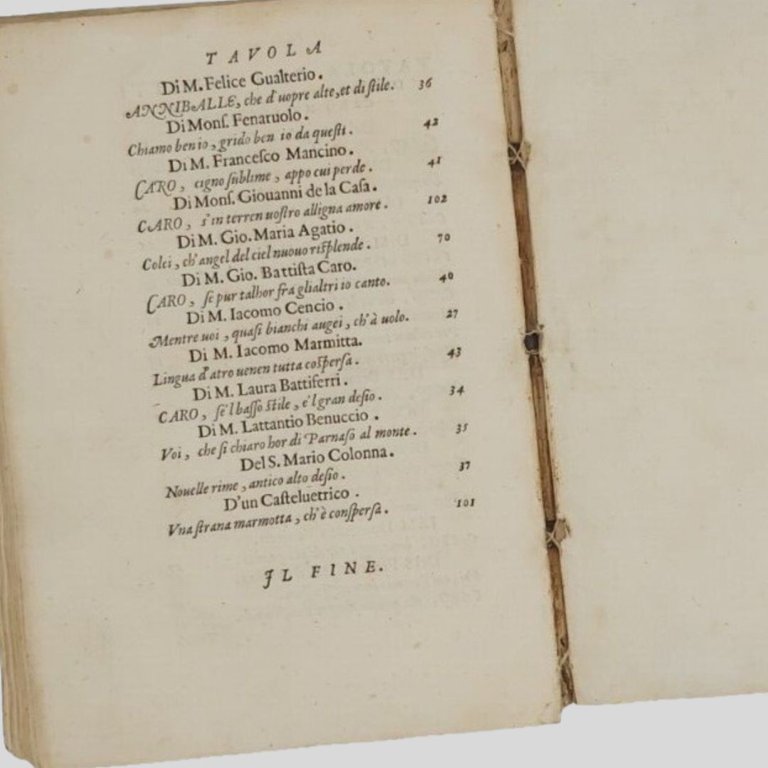 TAVOLA
Di M. Felice Gualterio.
ANNIBALLE, che d'uopre alte, et di ſtile. 36
Di Monſ. Fenaruolo.
Chiamo ben io, grido ben io da queſti. 42
Di M. Franceſco Mancino.
CARO, cigno ſublime, appo cui perde. 41
Di Monſ. Giouanni de la Caſa.
CARO, s'in terren uoſtro alligna amore. 102
Di M. Gio. Maria Agatio.
Colei, ch'angel del ciel nuouo riſplende. 70
Di M. Gio. Battiſta Caro.
CARO, ſe pur talhor fra glialtri io canto. 40
Di M. Iacomo Cencio.
Mentre uoi, quaſi bianchi augei, ch'à uolo. 27
Di M. Iacomo Marmitta.
Lingua d'atro uenen tutta coſperſa. 43
Di M. Laura Battiferri.
CARO, ſe'l baſſo ſtile, e'l gran deſio. 34
Di M. Lattantio Benuccio.
Voi, che ſi chiaro hor di Parnaſo al monte. 35
Del S. Mario Colonna.
Nouelle rime, antico alto deſio. 37
D'un Caſteluetrico.
Vna ſtrana marmotta, ch'è conſperſa. 101
IL FINE.